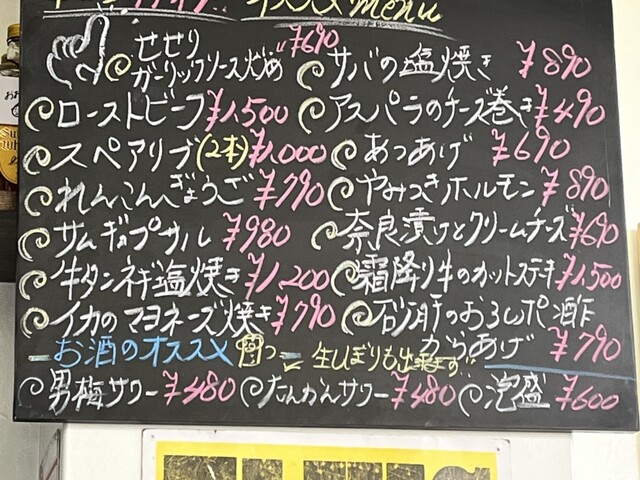 オススメ menu
せせり
ガーリックソース炒め ¥690
サバの塩焼き ¥890
ローストビーフ ¥1,500
アスパラのチーズ巻き ¥490
スペアリブ(2本) ¥1,000
あつあげ ¥690
れんこんぎょうざ ¥790
やみつきホルモン ¥890
サムギョプサル ¥980
奈良漬けとクリームチーズ ¥690
牛タンネギ塩焼き ¥1,200
霜降り牛のカットステーキ ¥1,500
イカのマヨネーズ焼き ¥790
砂肝のおろしポン酢
からあげ ¥790
お酒のオススメ
生しぼりも出来ます
男梅サワー ¥480
たんかんサワー ¥480
泡盛 ¥600